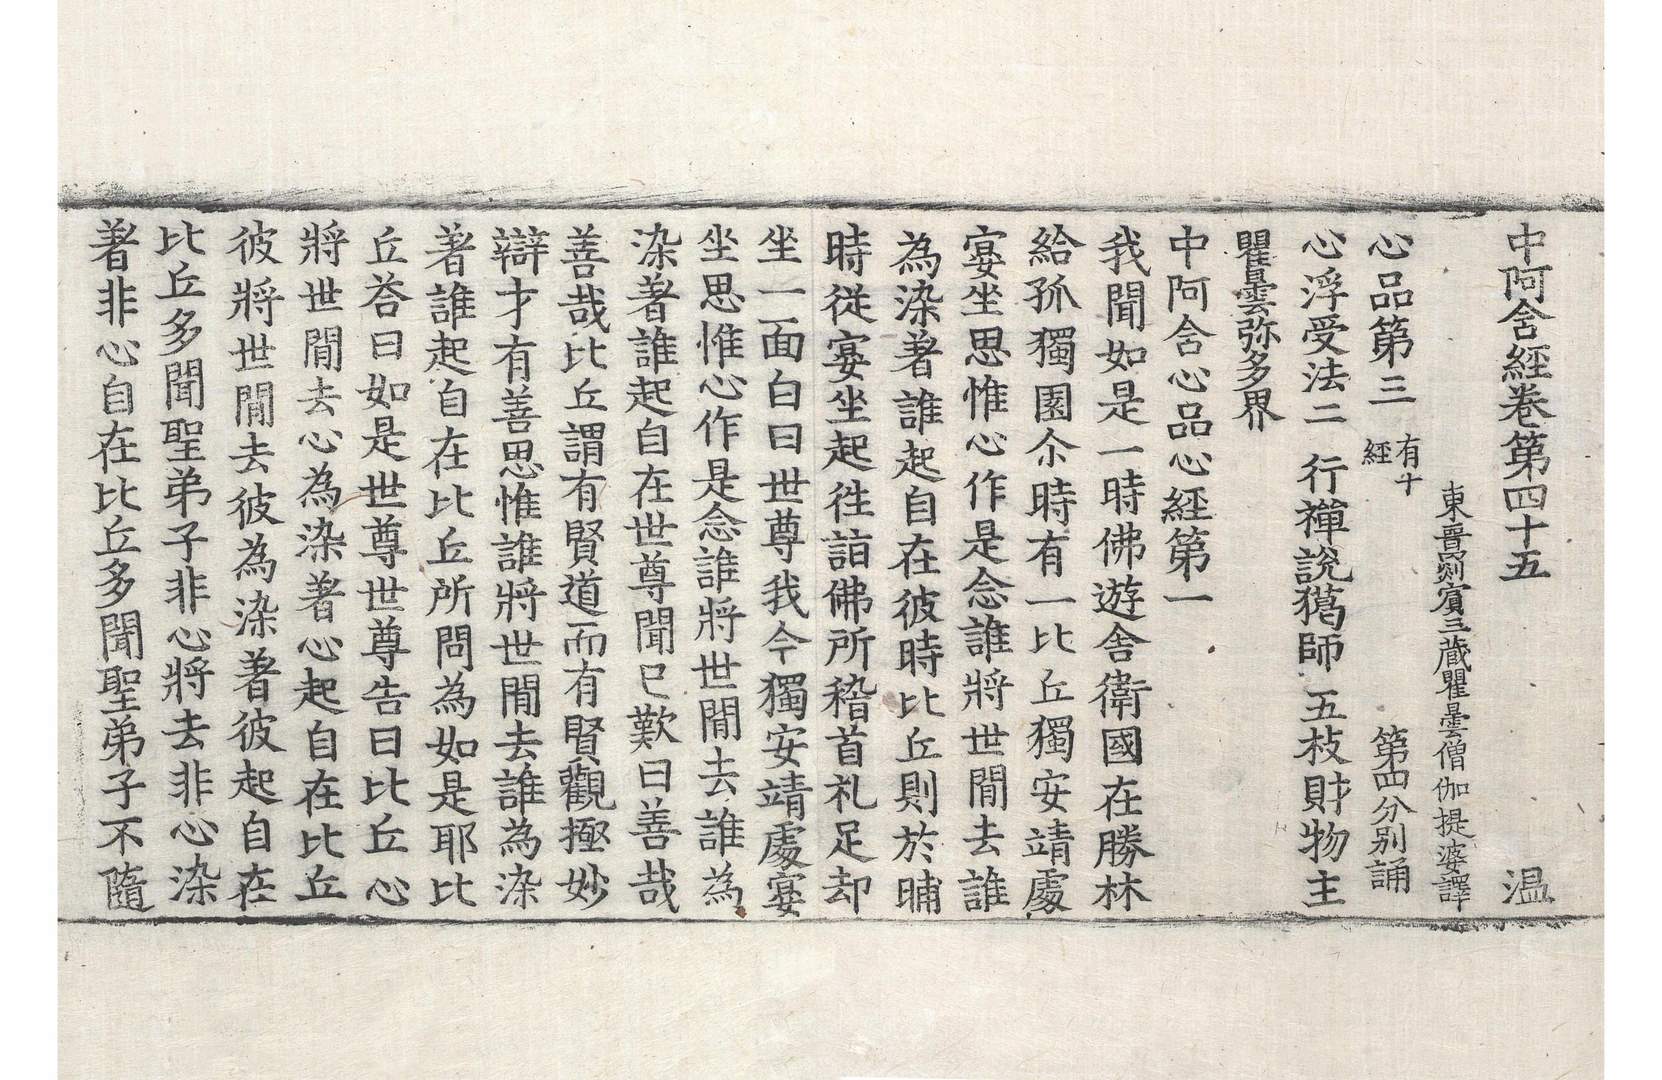 中阿含經卷第四十五　溫
東晉罽賓三藏瞿曇僧伽提婆譯
心品第三　有十經　第四分別誦
心浮受法二　行禪說獦師　五枝財物主
瞿曇弥多界
中阿含心品心經第一
我聞如是一時佛遊舍衛國在勝林
給孤獨園尒時有一比丘獨安靖處
宴坐思惟心作是念誰將世間去誰
為染著誰起自在彼時比丘則於晡
時從宴坐起往詣佛所稽首礼足却
坐一面白曰世尊我今獨安靖處宴
坐思惟心作是念誰將世間去誰為
染著誰起自在世尊聞已歎曰善哉
善哉比丘謂有賢道而有賢觀極妙
辯才有善思惟誰將世間去誰為染
著誰起自在比丘所問為如是耶比
丘荅曰如是世尊世尊告曰比丘心
將世間去心為染著心起自在比丘
彼將世間去彼為染著彼起自在
比丘多聞聖弟子非心將去非心染
著非心自在比丘多聞聖弟子不隨